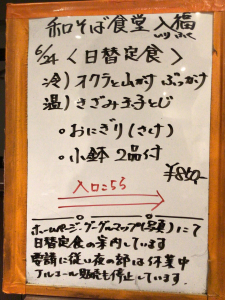 和そば食堂 入福
いりふく
6/24 〈日替定食〉
冷) オクラと山かけ ぶっかけ
温) きざみ玉子とじ
・おにぎり(さけ)
・小鉢 2品付
¥850-
入口こちら
ホームページ・グーグルマップ(写真)にて
日替定食の案内しています
要請に従い夜の部は休業中
アルコール類販売も停止しています.